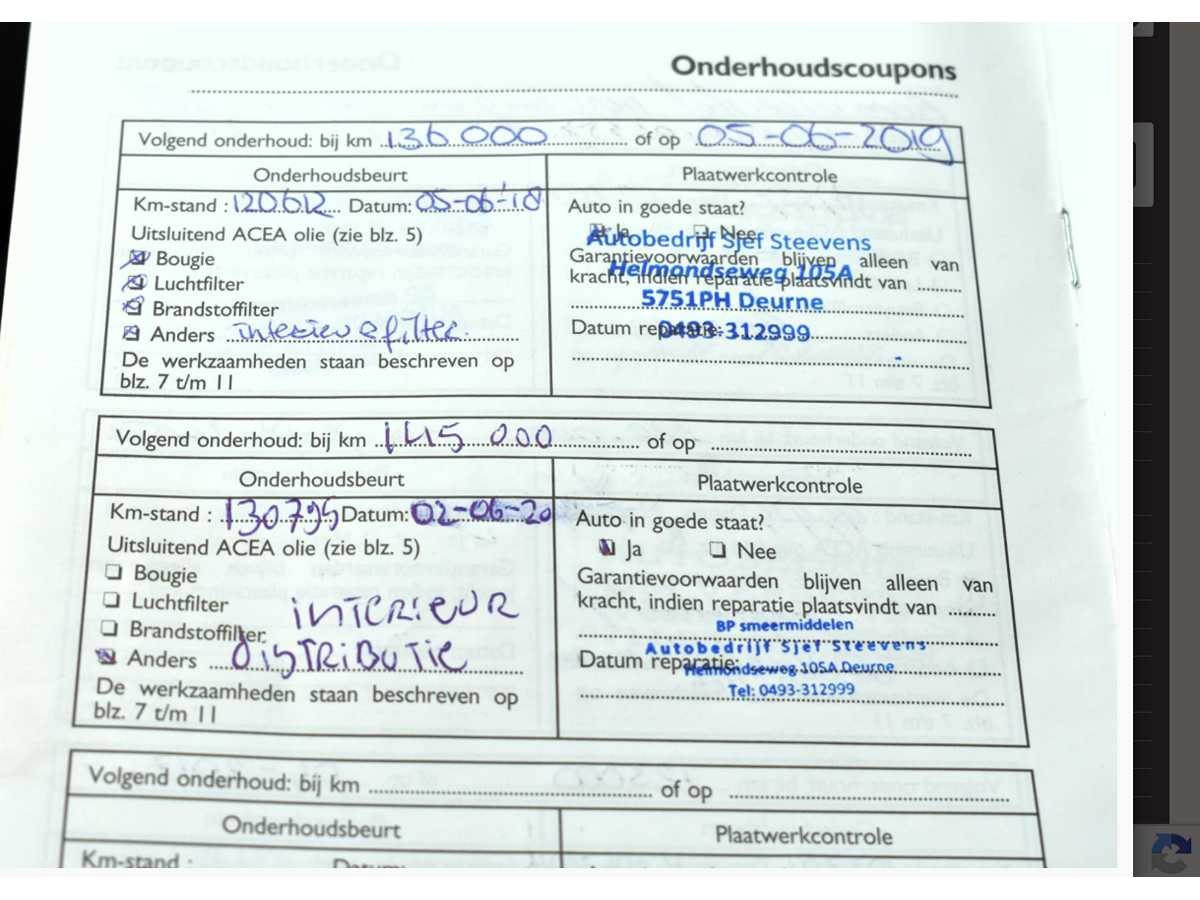 Onderhoudscoupons
Volgend onderhoud: bij km 136.000 of op 05-06-2019
Onderhoudsbeurt
Plaatwerkcontrole
Km-stand : 120612 Datum: 05-06-'18
Uitsluitend ACEA olie (zie blz. 5)
Bougie
Luchtfilter
Brandstoffilter
Anders interieurfilter.
De werkzaamheden staan beschreven op
blz. 7 t/m 11
Auto in goede staat?
Ja Nee
Autobedrijf Sjef Steevens
Garantievoorwaarden blijven alleen van
Helmondseweg 105A
kracht, indien reparatie plaatsvindt van
5751PH Deurne
Datum reparatie:
0493-312999
Volgend onderhoud: bij km 145 000 of op
Onderhoudsbeurt
Plaatwerkcontrole
Km-stand : 130.795 Datum: 02-06-20
Uitsluitend ACEA olie (zie blz. 5)
Bougie
Luchtfilter
Brandstoffilter
INTERIEUR
Anders DISTRIBUTIE
De werkzaamheden staan beschreven op
blz. 7 t/m 11
Auto in goede staat?
Ja Nee
Garantievoorwaarden blijven alleen van
kracht, indien reparatie plaatsvindt van
BP smeermiddelen
Autobedrijf Sjef Steevens
Datum reparatie:
Helmondseweg 105A Deurne
Tel: 0493-312999
Volgend onderhoud: bij km of op
Onderhoudsbeurt
Plaatwerkcontrole
Km-stand :
Datum: